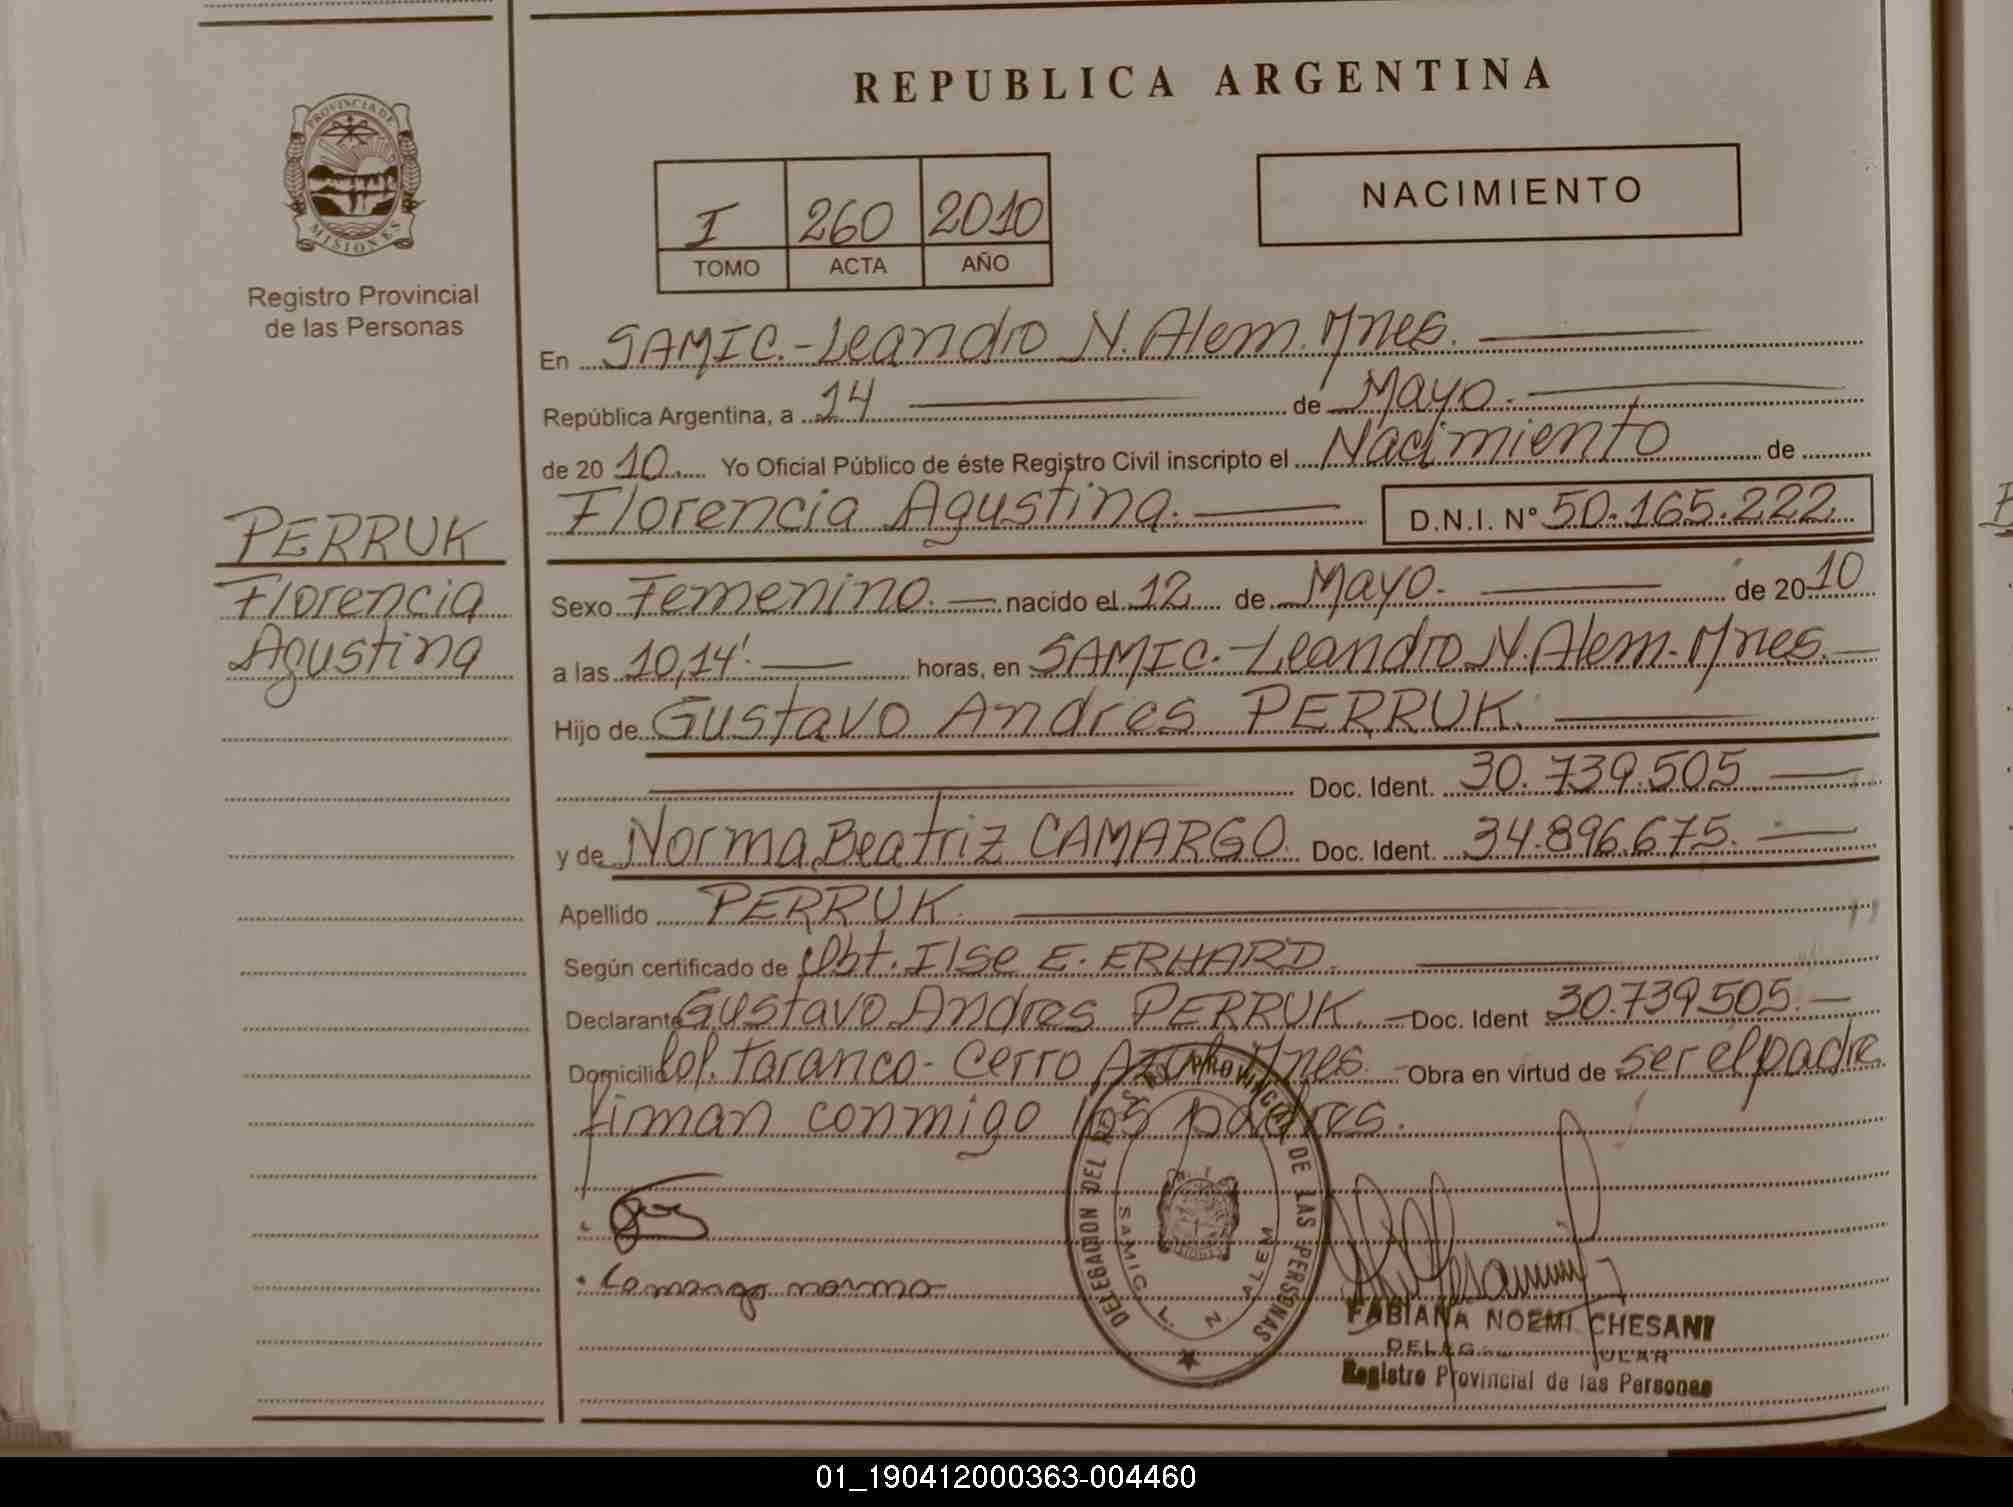 REPUBLICA ARGENTINA
PROVINCIA DE MISIONES
Registro Provincial
de las Personas
I 260 2010
TOMO ACTA AÑO
NACIMIENTO
En SAMIC.-Leandro N. Alem. Mnes.
República Argentina, a 14 de Mayo.
de 20 10. Yo Oficial Público de éste Registro Civil inscripto el Nacimiento de
Florencia Agustina. D.N.I. N° 50.165.222
PERRUK
Florencia
Agustina
Sexo Femenino. nacido el 12 de Mayo. de 20 10
a las 10,14'. horas, en SAMIC.-Leandro N. Alem. Mnes.
Hijo de Gustavo Andres PERRUK.
Doc. Ident. 30.739.505
y de Norma Beatriz CAMARGO. Doc. Ident. 34.896.675.
Apellido PERRUK.
Según certificado de Obt. Ilse E. ERHARD.
Declarante Gustavo Andres PERRUK. Doc. Ident 30.739.505.
Domicilio Col. Taranco - Cerro Azul Mnes. Obra en virtud de ser el padre
firman conmigo los padres.
Camargo norma
DELEGACION DEL REG. PROVINCIAL DE LAS PERSONAS
SAMIC L. N. ALEM
FABIANA NOEMI CHESANI
Registro Provincial de las Personas
01_190412000363-004460